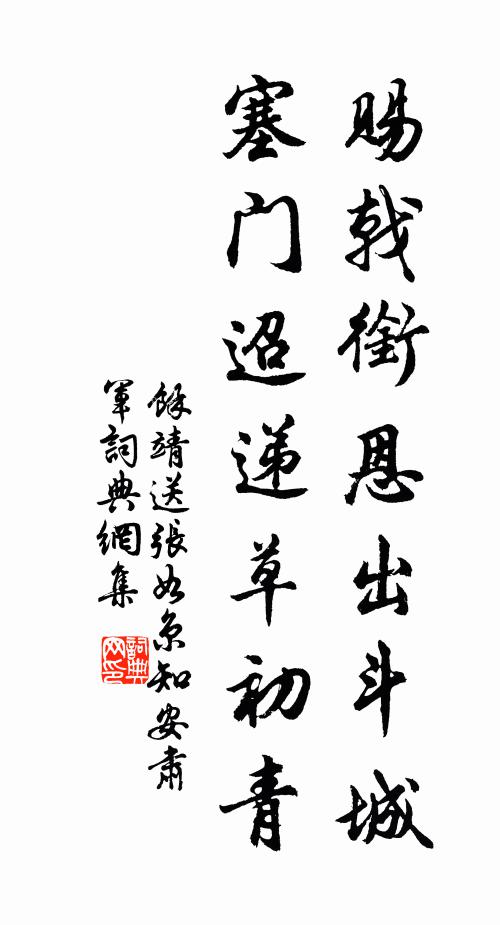 賜戟銜恩出斗城
塞門迢递草初青
餘靖送張如京知安肅
軍詞典網集
詞典网印